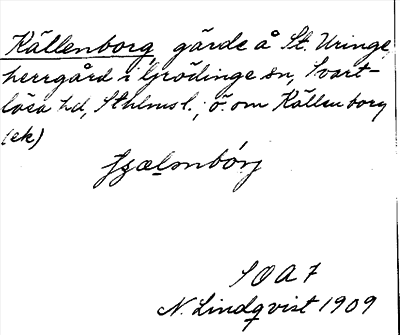 Källenborg gärde å St. Uringe,
herrgård i Grödinge sn, Svart-
lösa hd, Sthlms l., ö. om Källenborg
(ek)
SOA 7
N. Lindqvist 1909